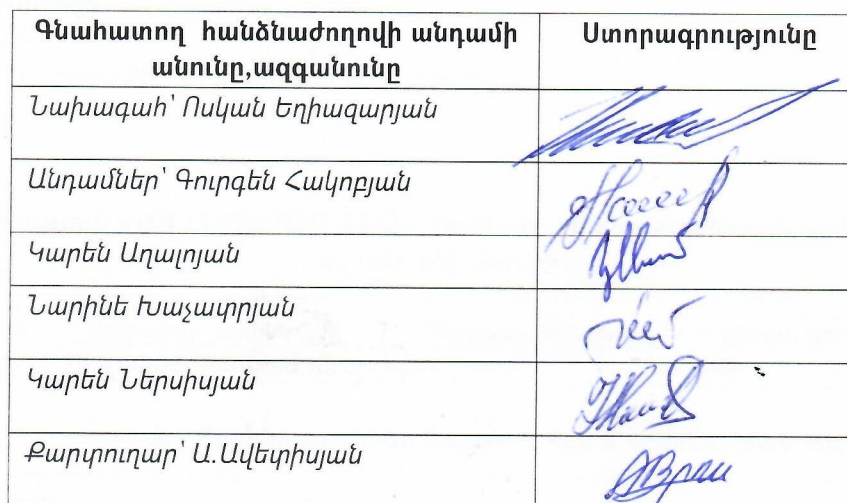 Գնահատող հանձնաժողովի անդամի
անունը,ազգանունը
Ստորագրությունը
Նախագահ՝ Ոսկան Եղիազարյան
Անդամներ՝ Գուրգեն Հակոբյան
Կարեն Աղալոյան
Նարինե Խաչատրյան
Կարեն Ներսիսյան
Քարտուղար՝ Ա.Ավետիսյան